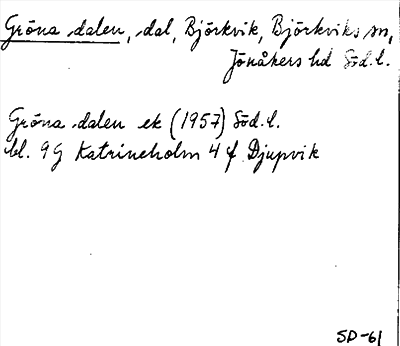 Gröna dalen, dal, Björkvik, Björkviks sn,
Jönåkers hd Söd.l.
Gröna dalen ek (1957) Söd.l.
bl. 9G Katrineholm 4f Djupvik
SD-61